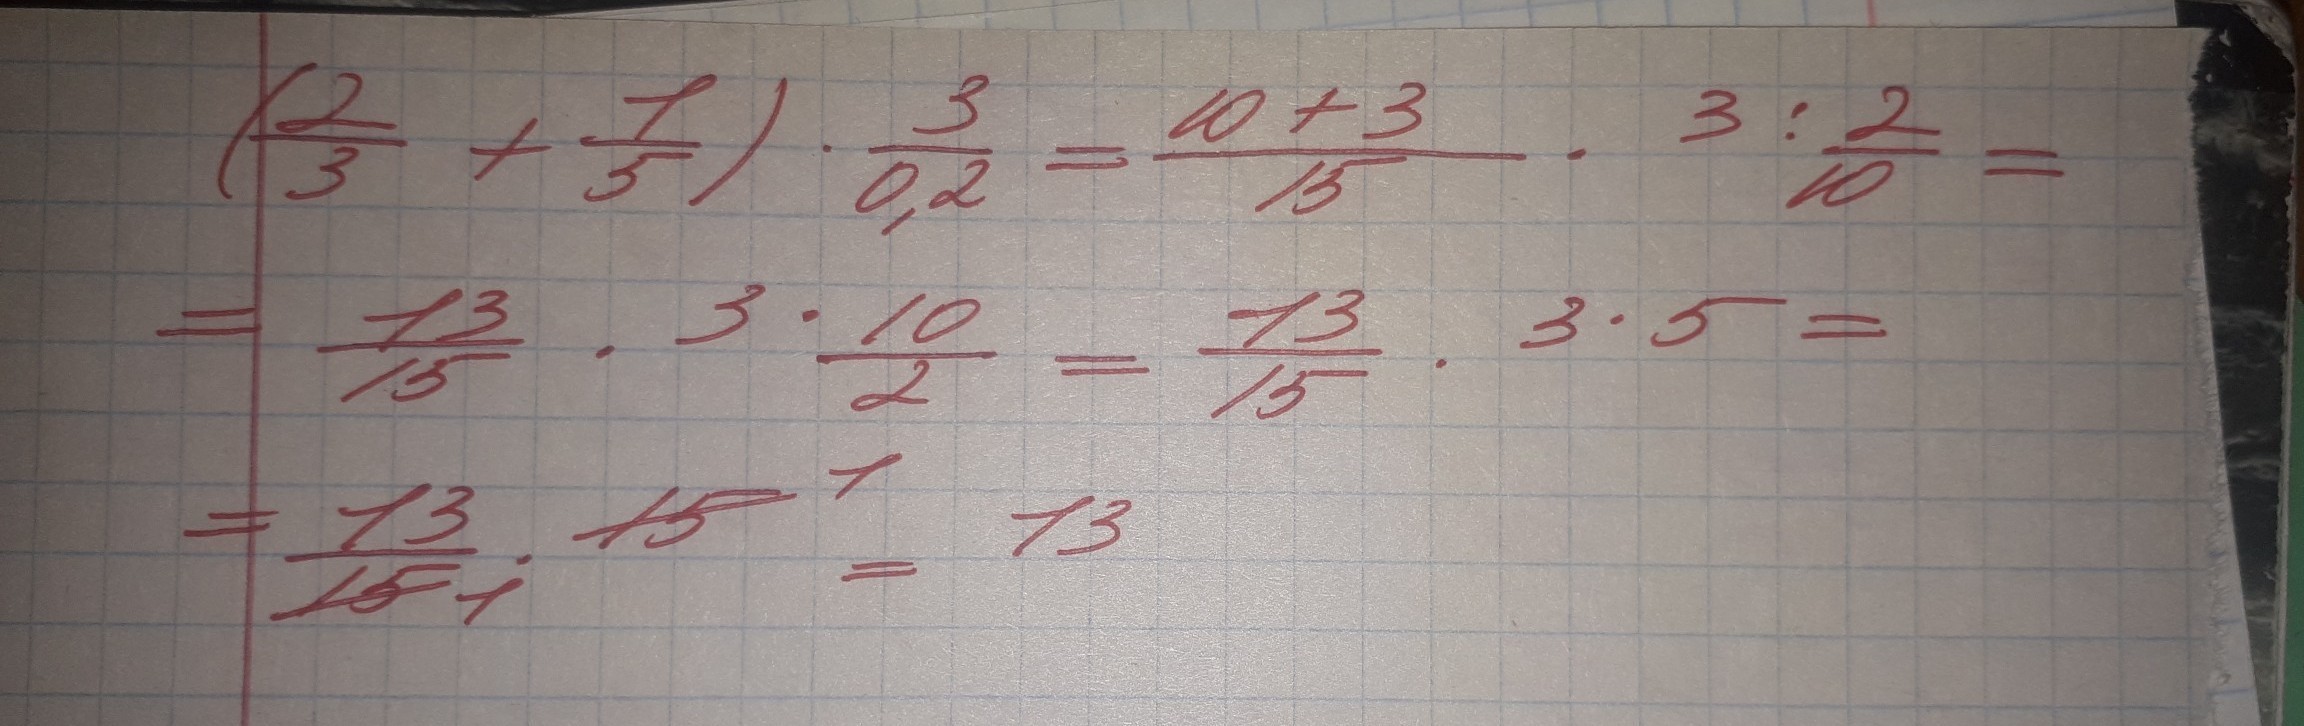 (2/3 + 1/5) · 3/0,2 = (10 + 3)/15 · 3 : 2/10 =
= 13/15 · 3 · 10/2 = 13/15 · 3 · 5 =
= 13/15 1 · 15 1 = 13